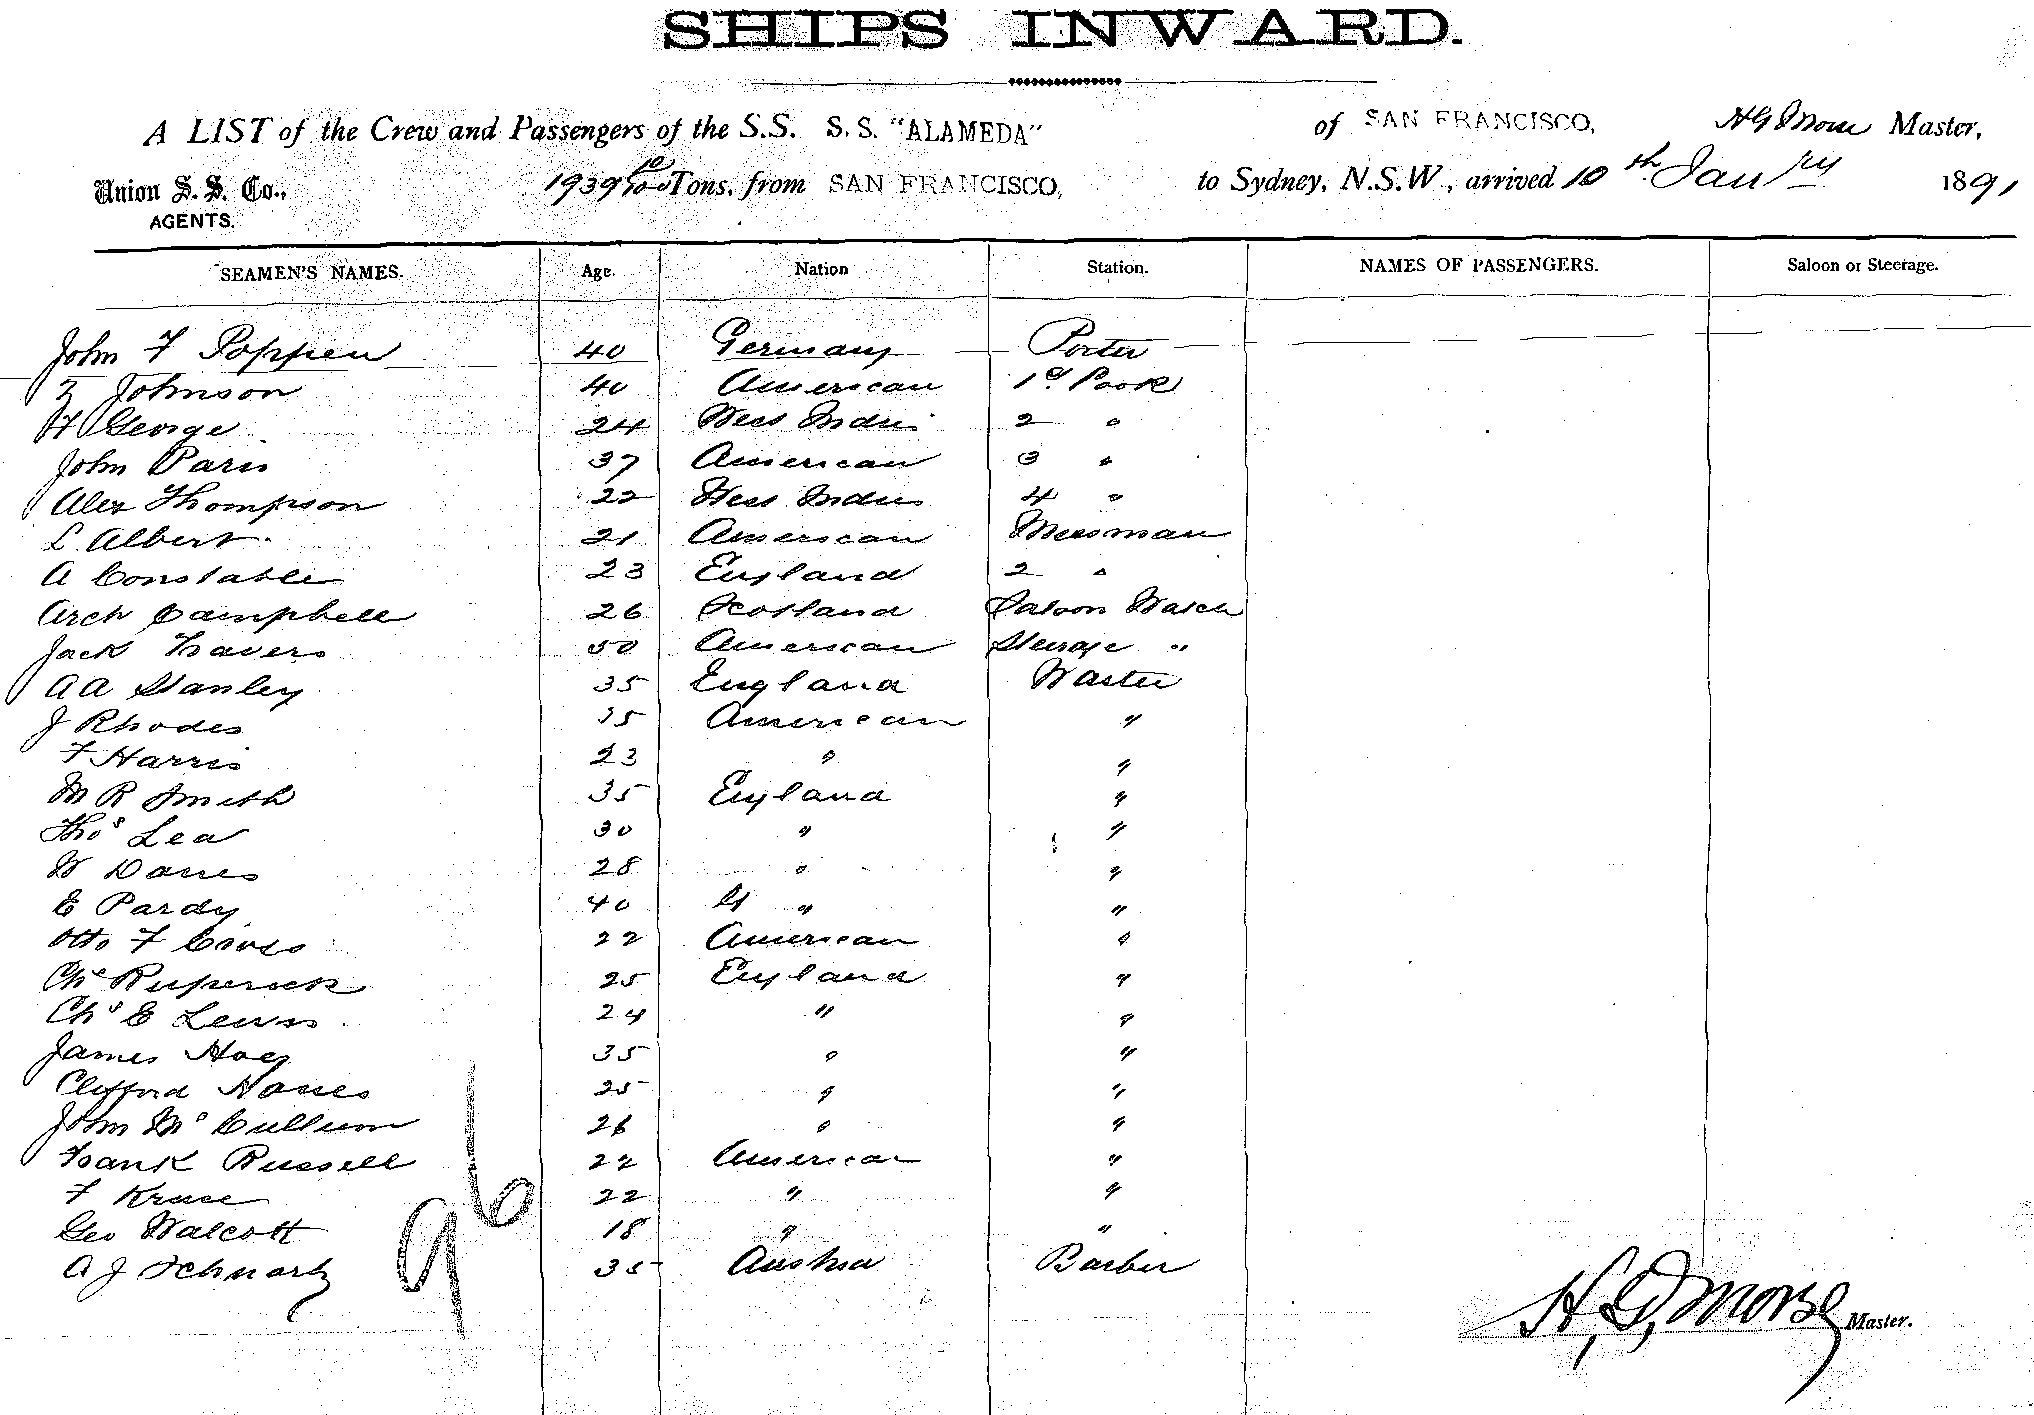 SHIPS INWARD.
A LIST of the Crew and Passengers of the S.S. S.S. "ALAMEDA" of SAN FRANCISCO, H G Morse Master,
Union S. S. Co., AGENTS. 1939 10/100 Tons, from SAN FRANCISCO, to Sydney, N.S.W., arrived 10th Janry 1891
SEAMEN'S NAMES. Age. Nation Station. NAMES OF PASSENGERS. Saloon or Steerage.
John F Poppen 40 Germany Porter
Z Johnson 40 American 1st Cook
H George 24 West Indies 2 "
John Paris 37 American 3 "
Alex Thompson 22 West Indies 4 "
L Albert 21 American Messman
A Constable 23 England 2 "
Arch Campbell 26 Scotland Saloon Watch
Jack Travers 50 American Steerage "
A A Stanley 35 England Waiter
J Rhodes 35 American "
F Harris 23 " "
M R Smith 35 England "
Thos Lea 30 " "
W Davies 28 " "
E Pardy 40 " "
Otto F 22 American "
Chs 25 England "
Chs E Lewis 24 " "
James Hoey 35 " "
Clifford 25 " "
John McCullum 26 " "
Frank Russell 22 American "
F Kruse 22 " "
Geo Walcott 18 " "
A J Schwartz 35 Austria Barber
96
H. G. Morse Master.